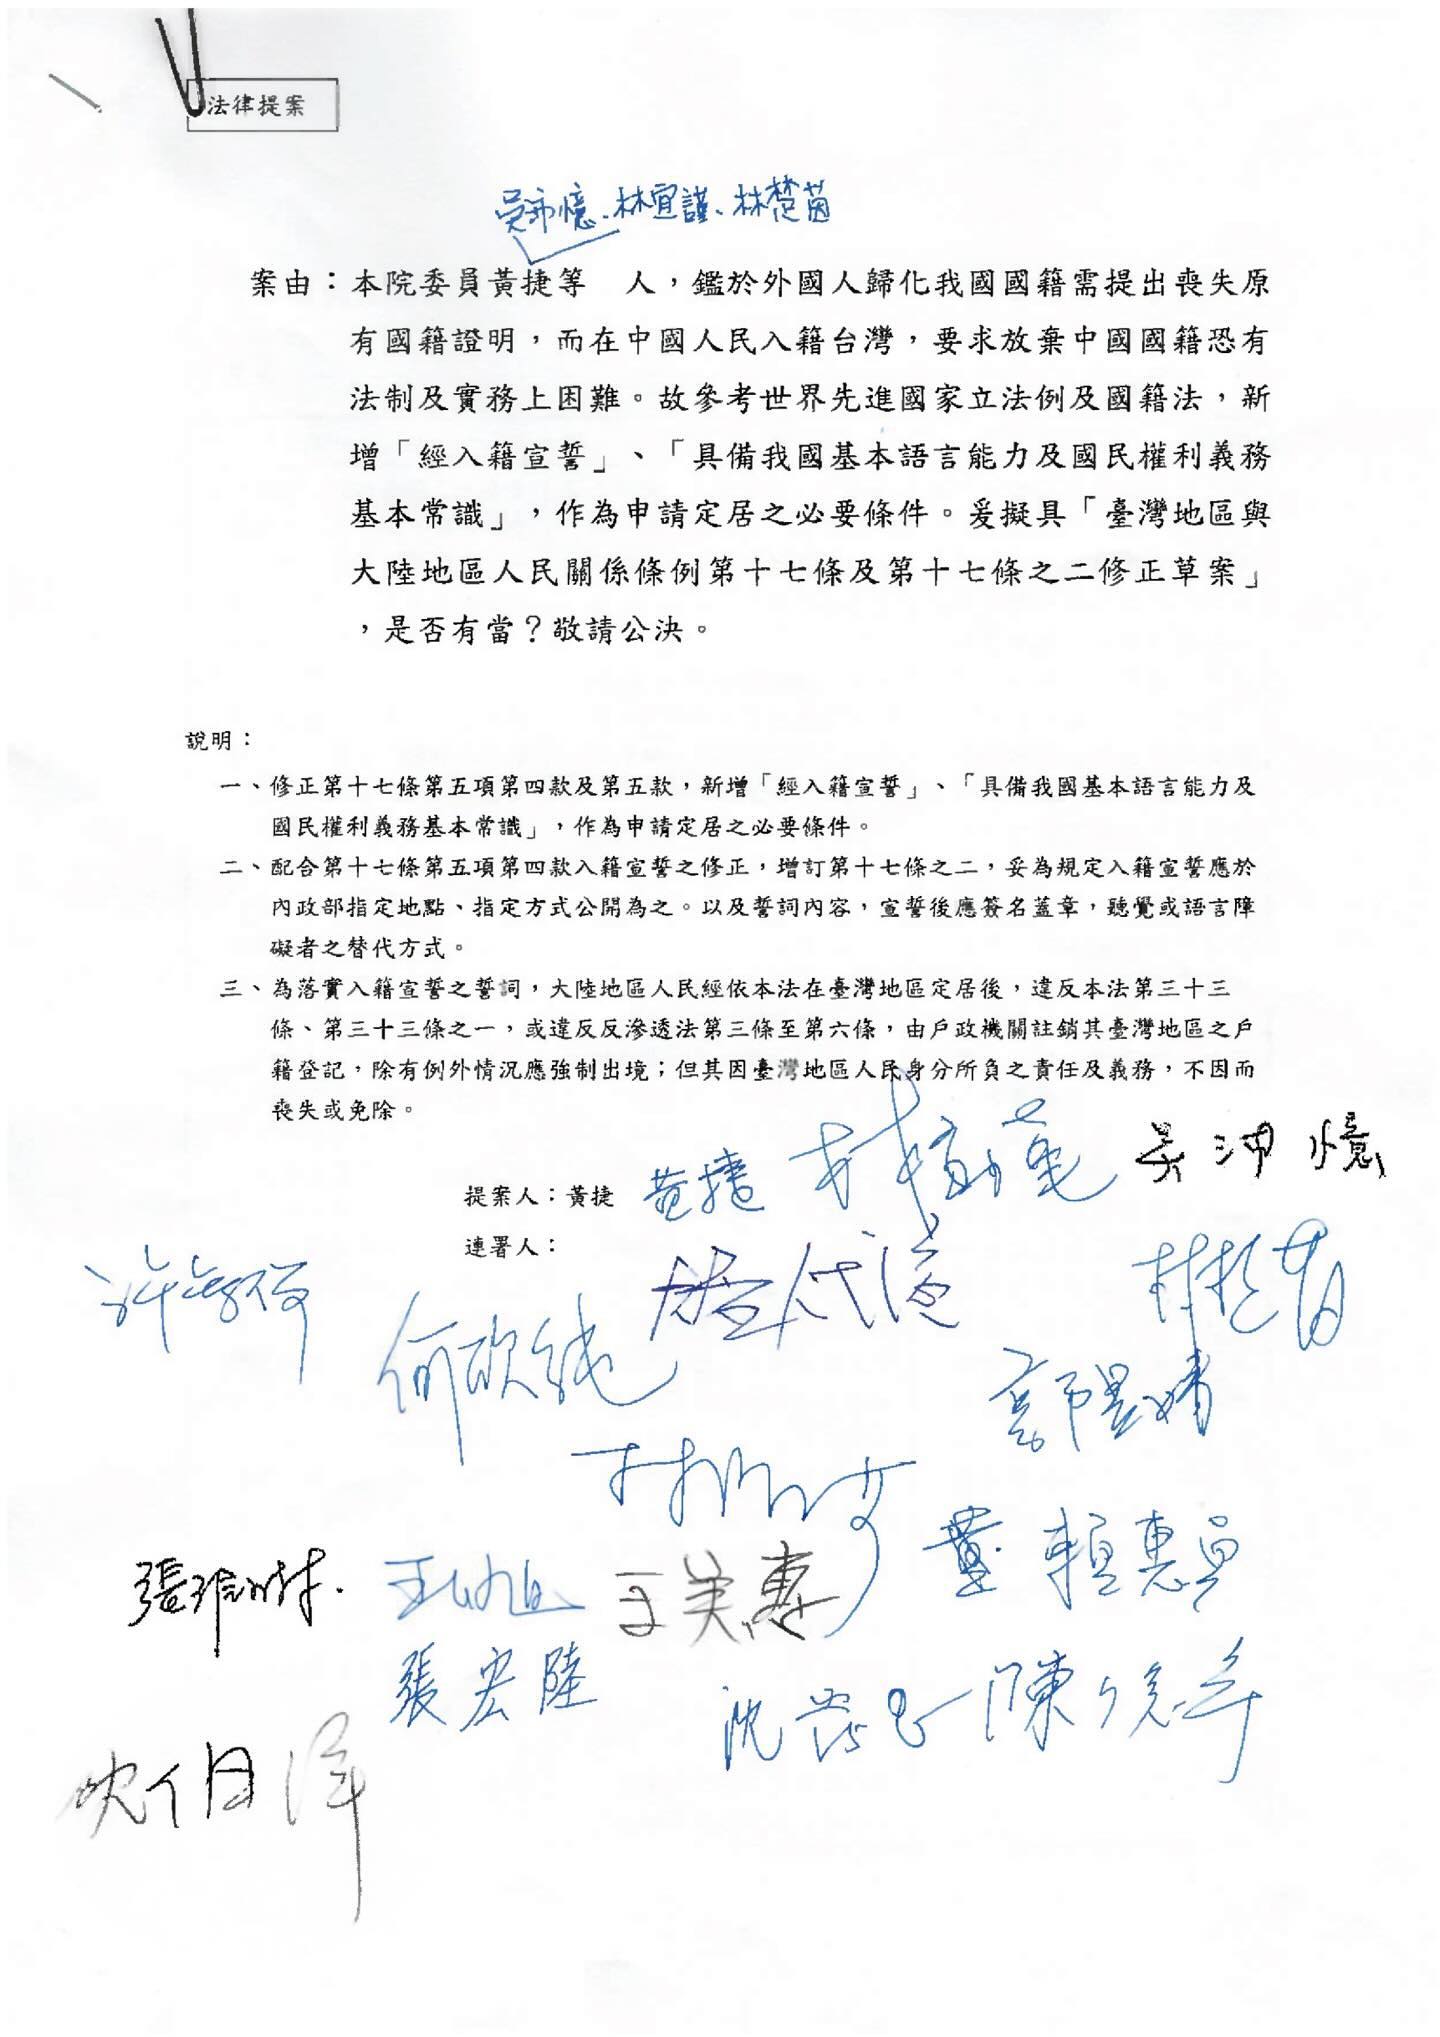 法律提案
吳沛憶、林宜謹、林楚茵
案由：本院委員黃捷等　人，鑑於外國人歸化我國國籍需提出喪失原
有國籍證明，而在中國人民入籍台灣，要求放棄中國國籍恐有
法制及實務上困難。故參考世界先進國家立法例及國籍法，新
增「經入籍宣誓」、「具備我國基本語言能力及國民權利義務
基本常識」，作為申請定居之必要條件。爰擬具「臺灣地區與
大陸地區人民關係條例第十七條及第十七條之二修正草案」
，是否有當？敬請公決。
說明：
一、修正第十七條第五項第四款及第五款，新增「經入籍宣誓」、「具備我國基本語言能力及
國民權利義務基本常識」，作為申請定居之必要條件。
二、配合第十七條第五項第四款入籍宣誓之修正，增訂第十七條之二，妥為規定入籍宣誓應於
內政部指定地點、指定方式公開為之。以及誓詞內容，宣誓後應簽名蓋章，聽覺或語言障
礙者之替代方式。
三、為落實入籍宣誓之誓詞，大陸地區人民經依本法在臺灣地區定居後，違反本法第三十三
條、第三十三條之一，或違反反滲透法第三條至第六條，由戶政機關註銷其臺灣地區之戶
籍登記，除有例外情況應強制出境；但其因臺灣地區人民身分所負之責任及義務，不因而
喪失或免除。
提案人：黃捷 黃捷 吳沛憶
連署人：
林楚茵
何欣純
郭昱晴
賴惠員
張雅琳
王美惠
張宏陸
沈發惠
陳俊宇
沈伯洋